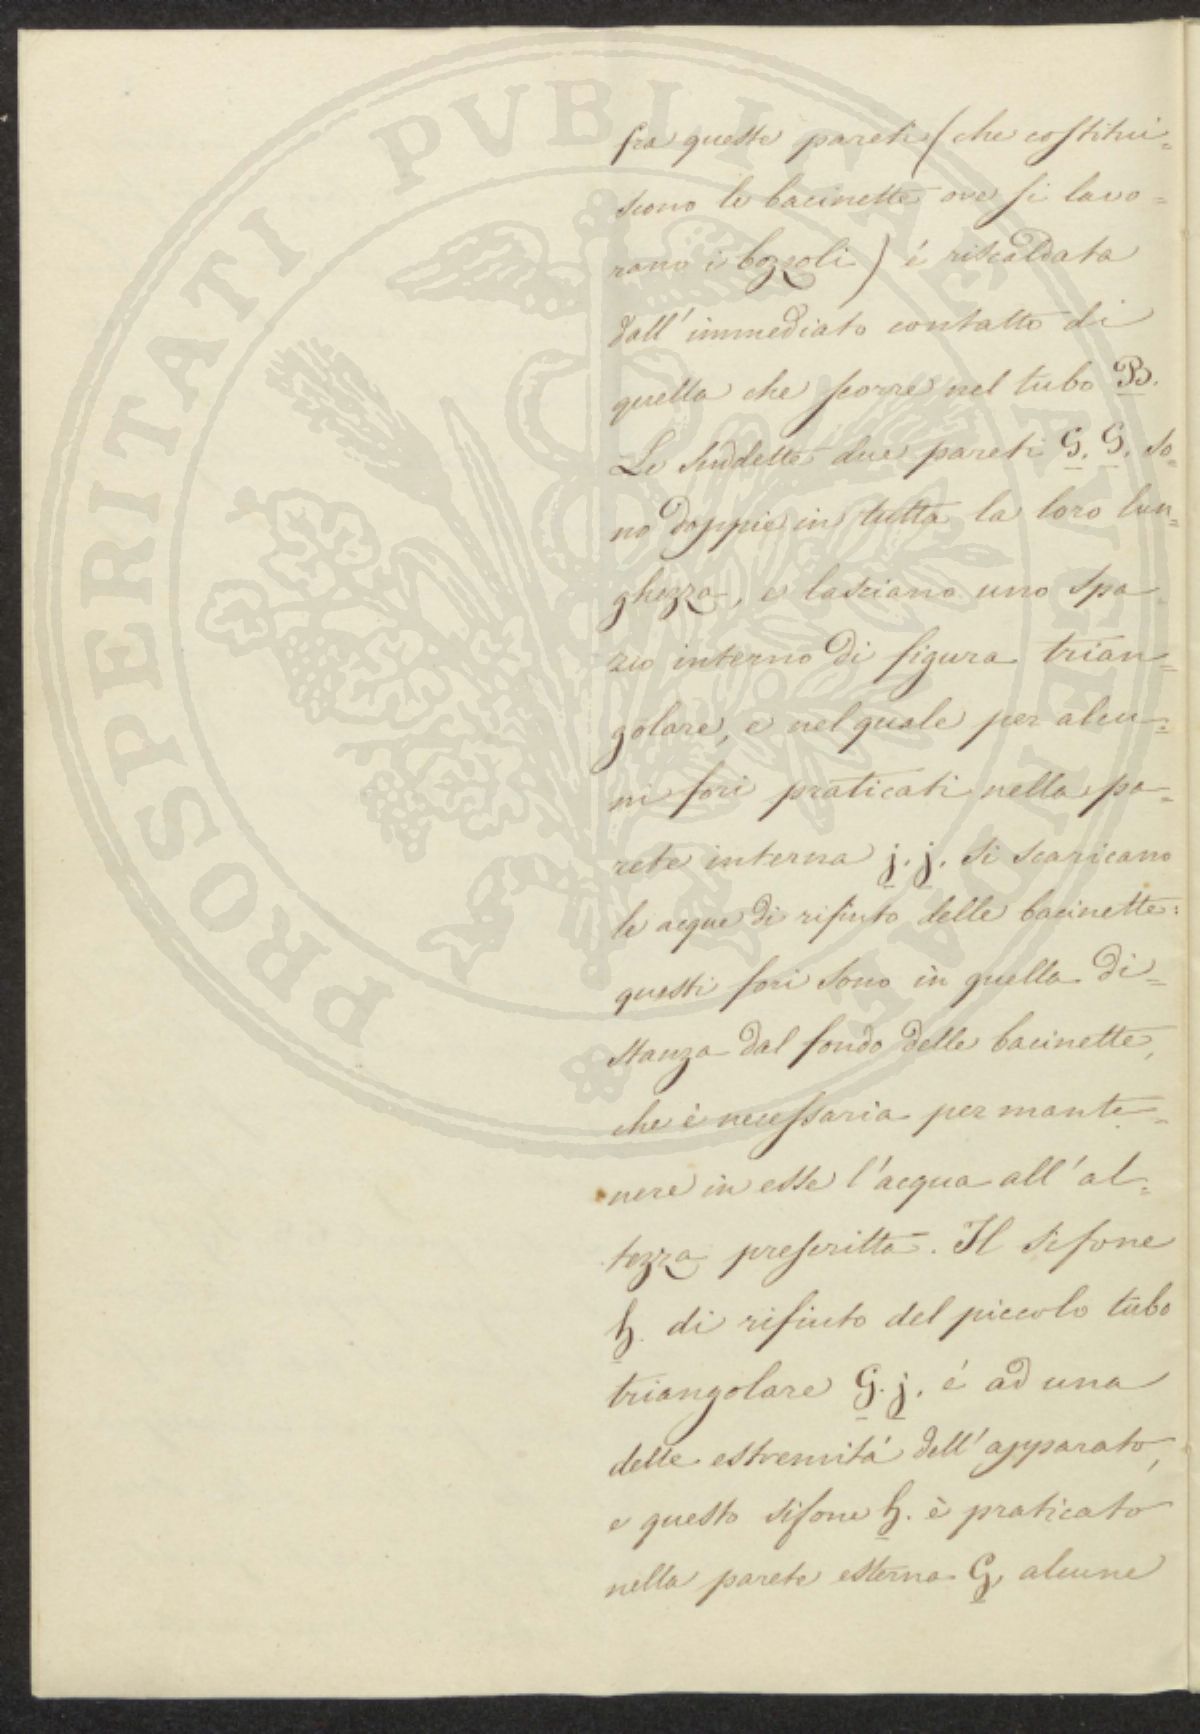 fra queste pareti (che costitui=
scono le bacinette ove si lavo=
rano i bozzoli) é riscaldata
dall'immediato contatto di
quella che scorre nel tubo B.
Le suddette due pareti G. G. so=
no doppie in tutta la loro lun=
ghezza, e lasciano uno spa
zio interno di figura trian=
golare, e nel quale per alcu=
ni fori praticati nella pa=
rete interna j. j. si scaricano
le acque di rifiuto delle bacinette:
questi fori sono in quella di=
stanza dal fondo delle bacinette,
che è necessaria per mante=
nere in esse l'acqua all'al=
tezza prescritta. Il sifone
h. di rifiuto del piccolo tubo
triangolare G. j. é ad una
delle estremitá dell'apparato,
e questo sifone h. è praticato
nella parete esterna G, alcune
PROSPERITATI PVBLICAE AVGENDAE